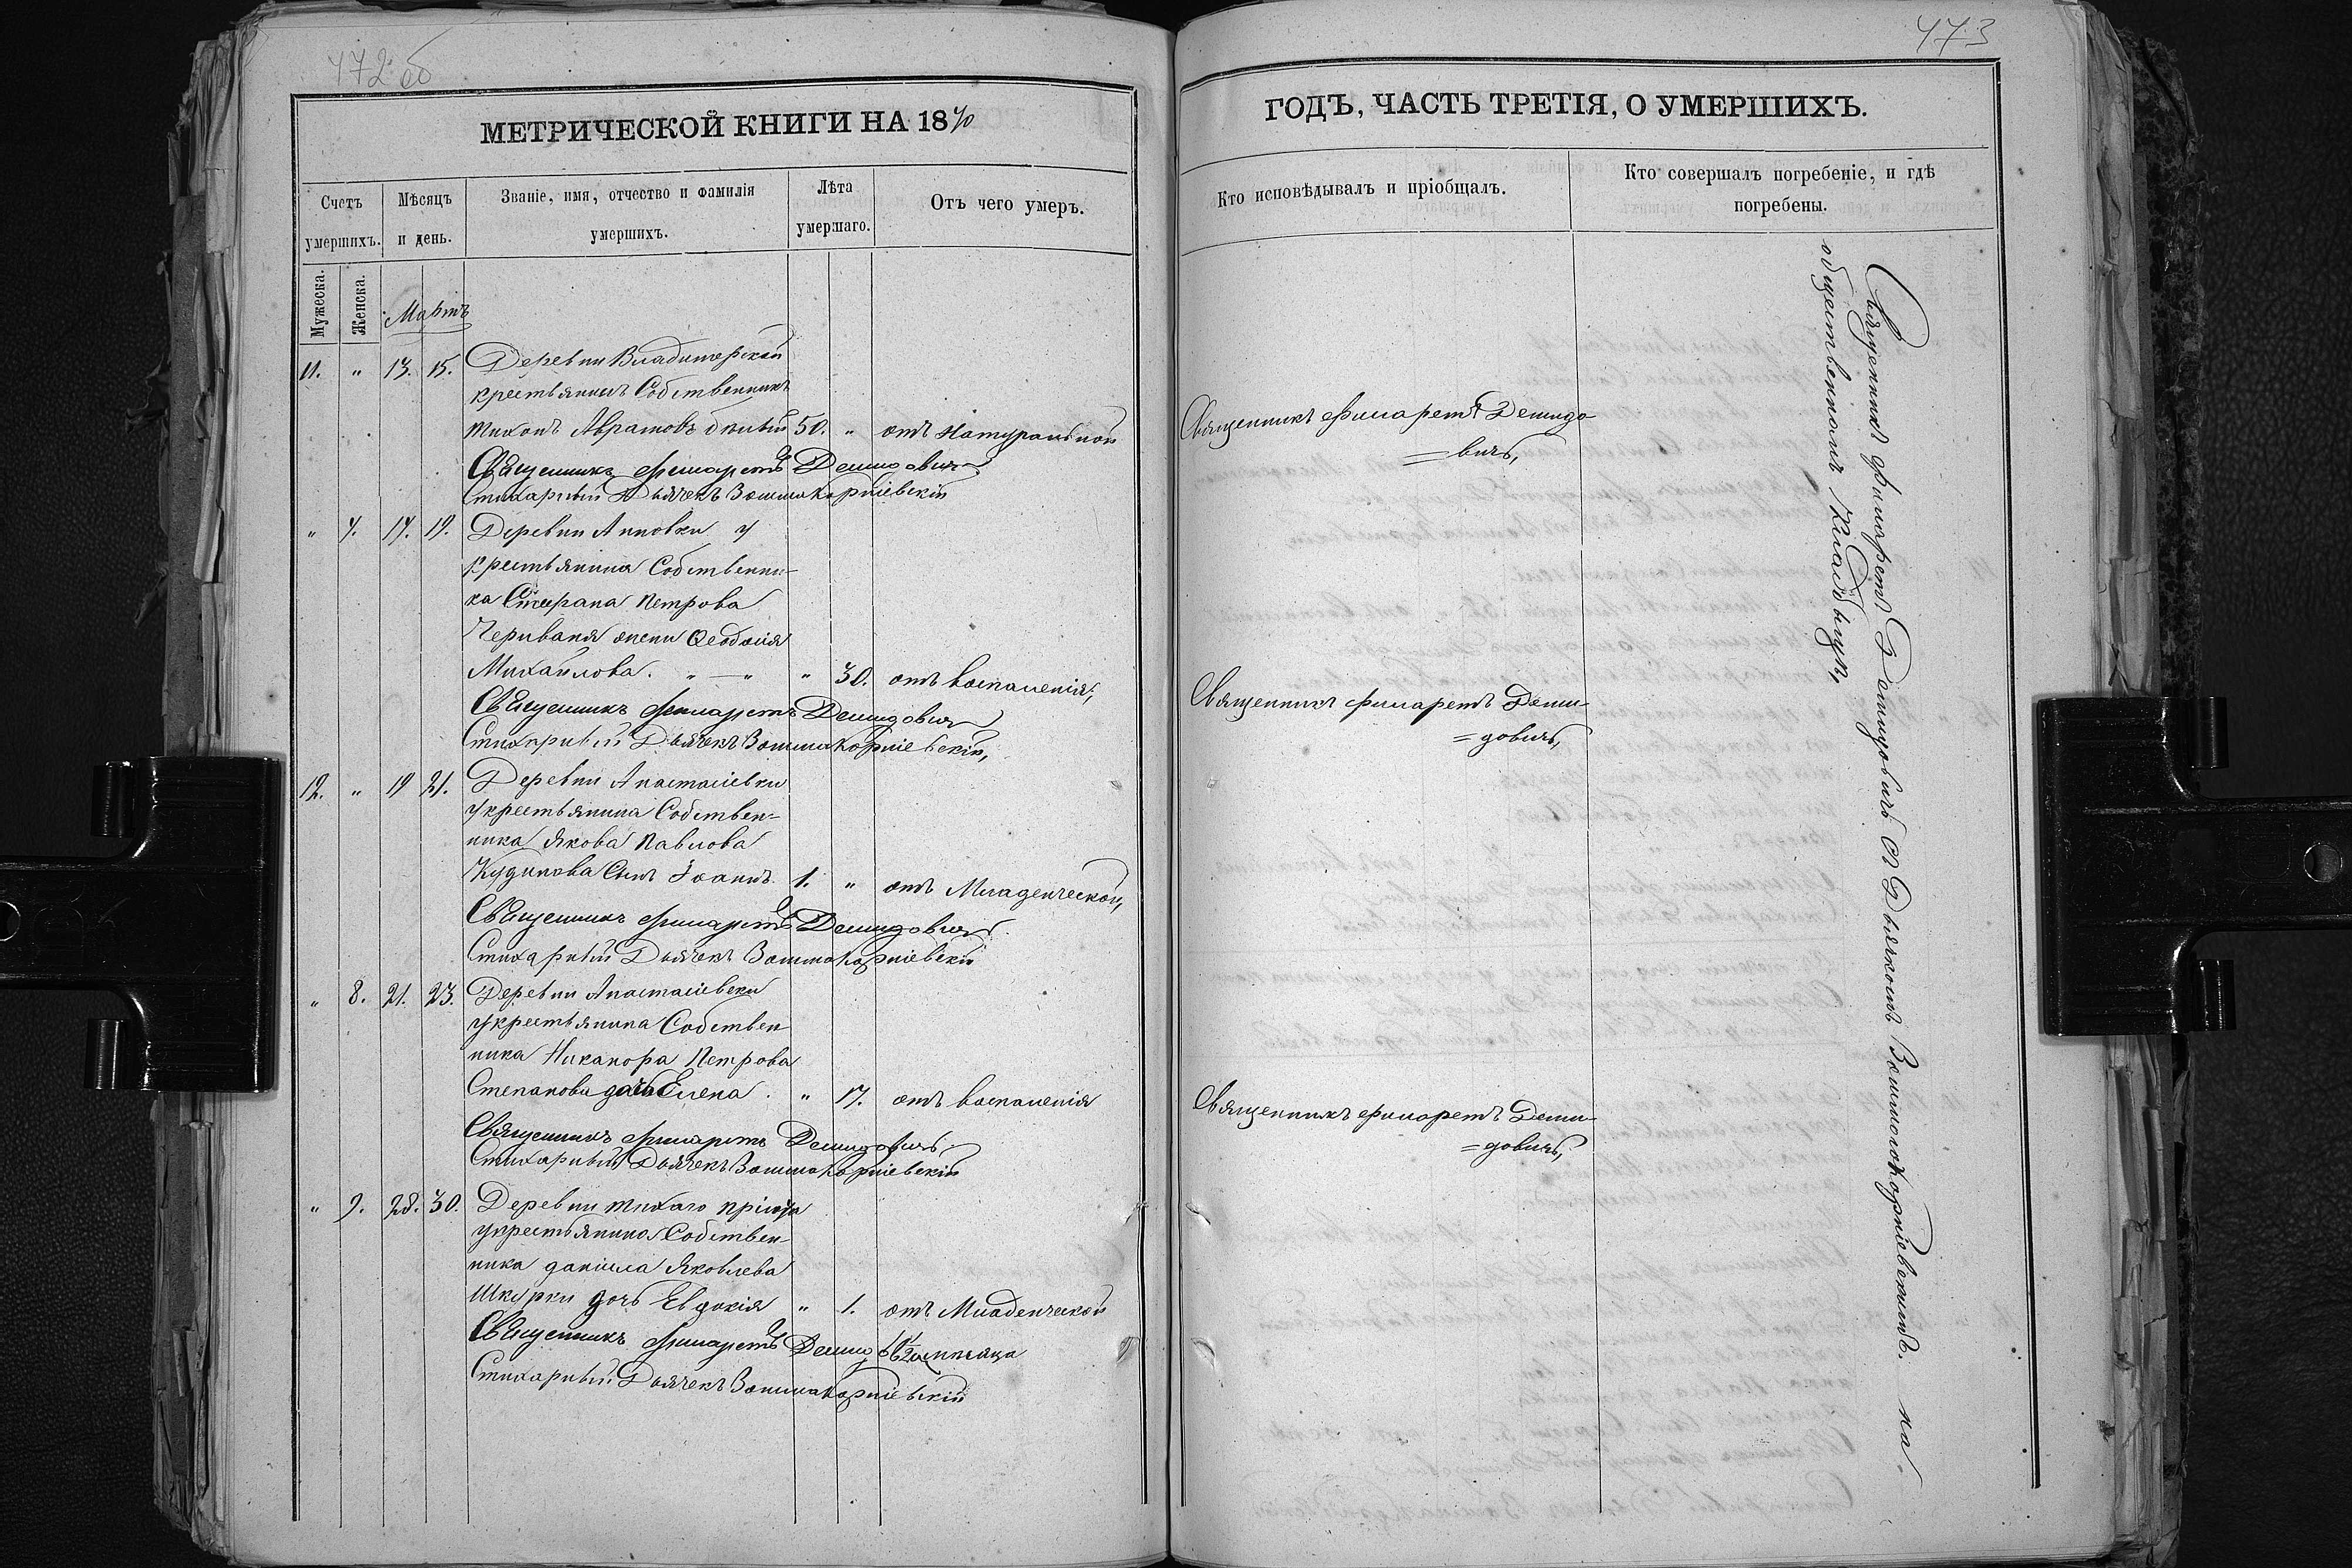 472 об
МЕТРИЧЕСКОЙ КНИГИ НА 1870
Счетъ умершихъ.
Мѣсяцъ и день.
Званіе, имя, отчество и фамилія умершихъ.
Лѣта умершаго.
Отъ чего умеръ.
Мужеска.
Женска.
Мартъ
11. „ 13. 15. Деревни Владимерской
крестьянинъ Собственникъ
Тихонъ Аврамовъ 50. „ отъ Натуральной
Священникъ Филаретъ Демидовичъ
Стихарный Дьячекъ Корніевскій
„ 7. 17. 19. Деревни Анновки у
крестьянина Собственни-
ка Стефана Петрова
жени Феодосія
Михайлова. „ — „ „ 30. отъ воспаленія,
Священникъ Филаретъ Демидовичъ
Стихарный Дьячекъ Корніевскій,
12. „ 19 21. Деревни Анастасіевки
у крестьянина Собствен-
ника Якова Павлова
Кудинова Сынъ Іоаннъ. 1. „ отъ Младенческой,
Священникъ Филаретъ Демидовичъ
Стихарный Дьячекъ Корніевскій
„ 8. 21. 23. Деревни Анастасіевки
у крестьянина Собствен
ника Никанора Петрова
Степанови дочь Елена. „ 17. отъ воспаленія
Священникъ Филаретъ Демидовичъ
Стихарный Дьячекъ Корніевскій
„ 9. 28. 30. Деревни Тихаго пріюта
у крестьянина Собствен-
ника Даніила Яковлева
Шкурки дочь Евдокія „ 1. отъ Младенческой
Священникъ Филаретъ
Стихарный Дьячекъ Корніевскій
473
ГОДЪ, ЧАСТЬ ТРЕТІЯ, О УМЕРШИХЪ.
Кто исповѣдывалъ и пріобщалъ.
Кто совершалъ погребеніе, и гдѣ погребены.
Священникъ Филаретъ Демидо
=вичъ,
Священникъ Филаретъ Деми-
=довичъ,
Священникъ Филаретъ Деми-
=довичъ,
Священникъ Филаретъ Демидовичъ съ Дьячкомъ Корніевскимъ. на
общественномъ Кладбищѣ,